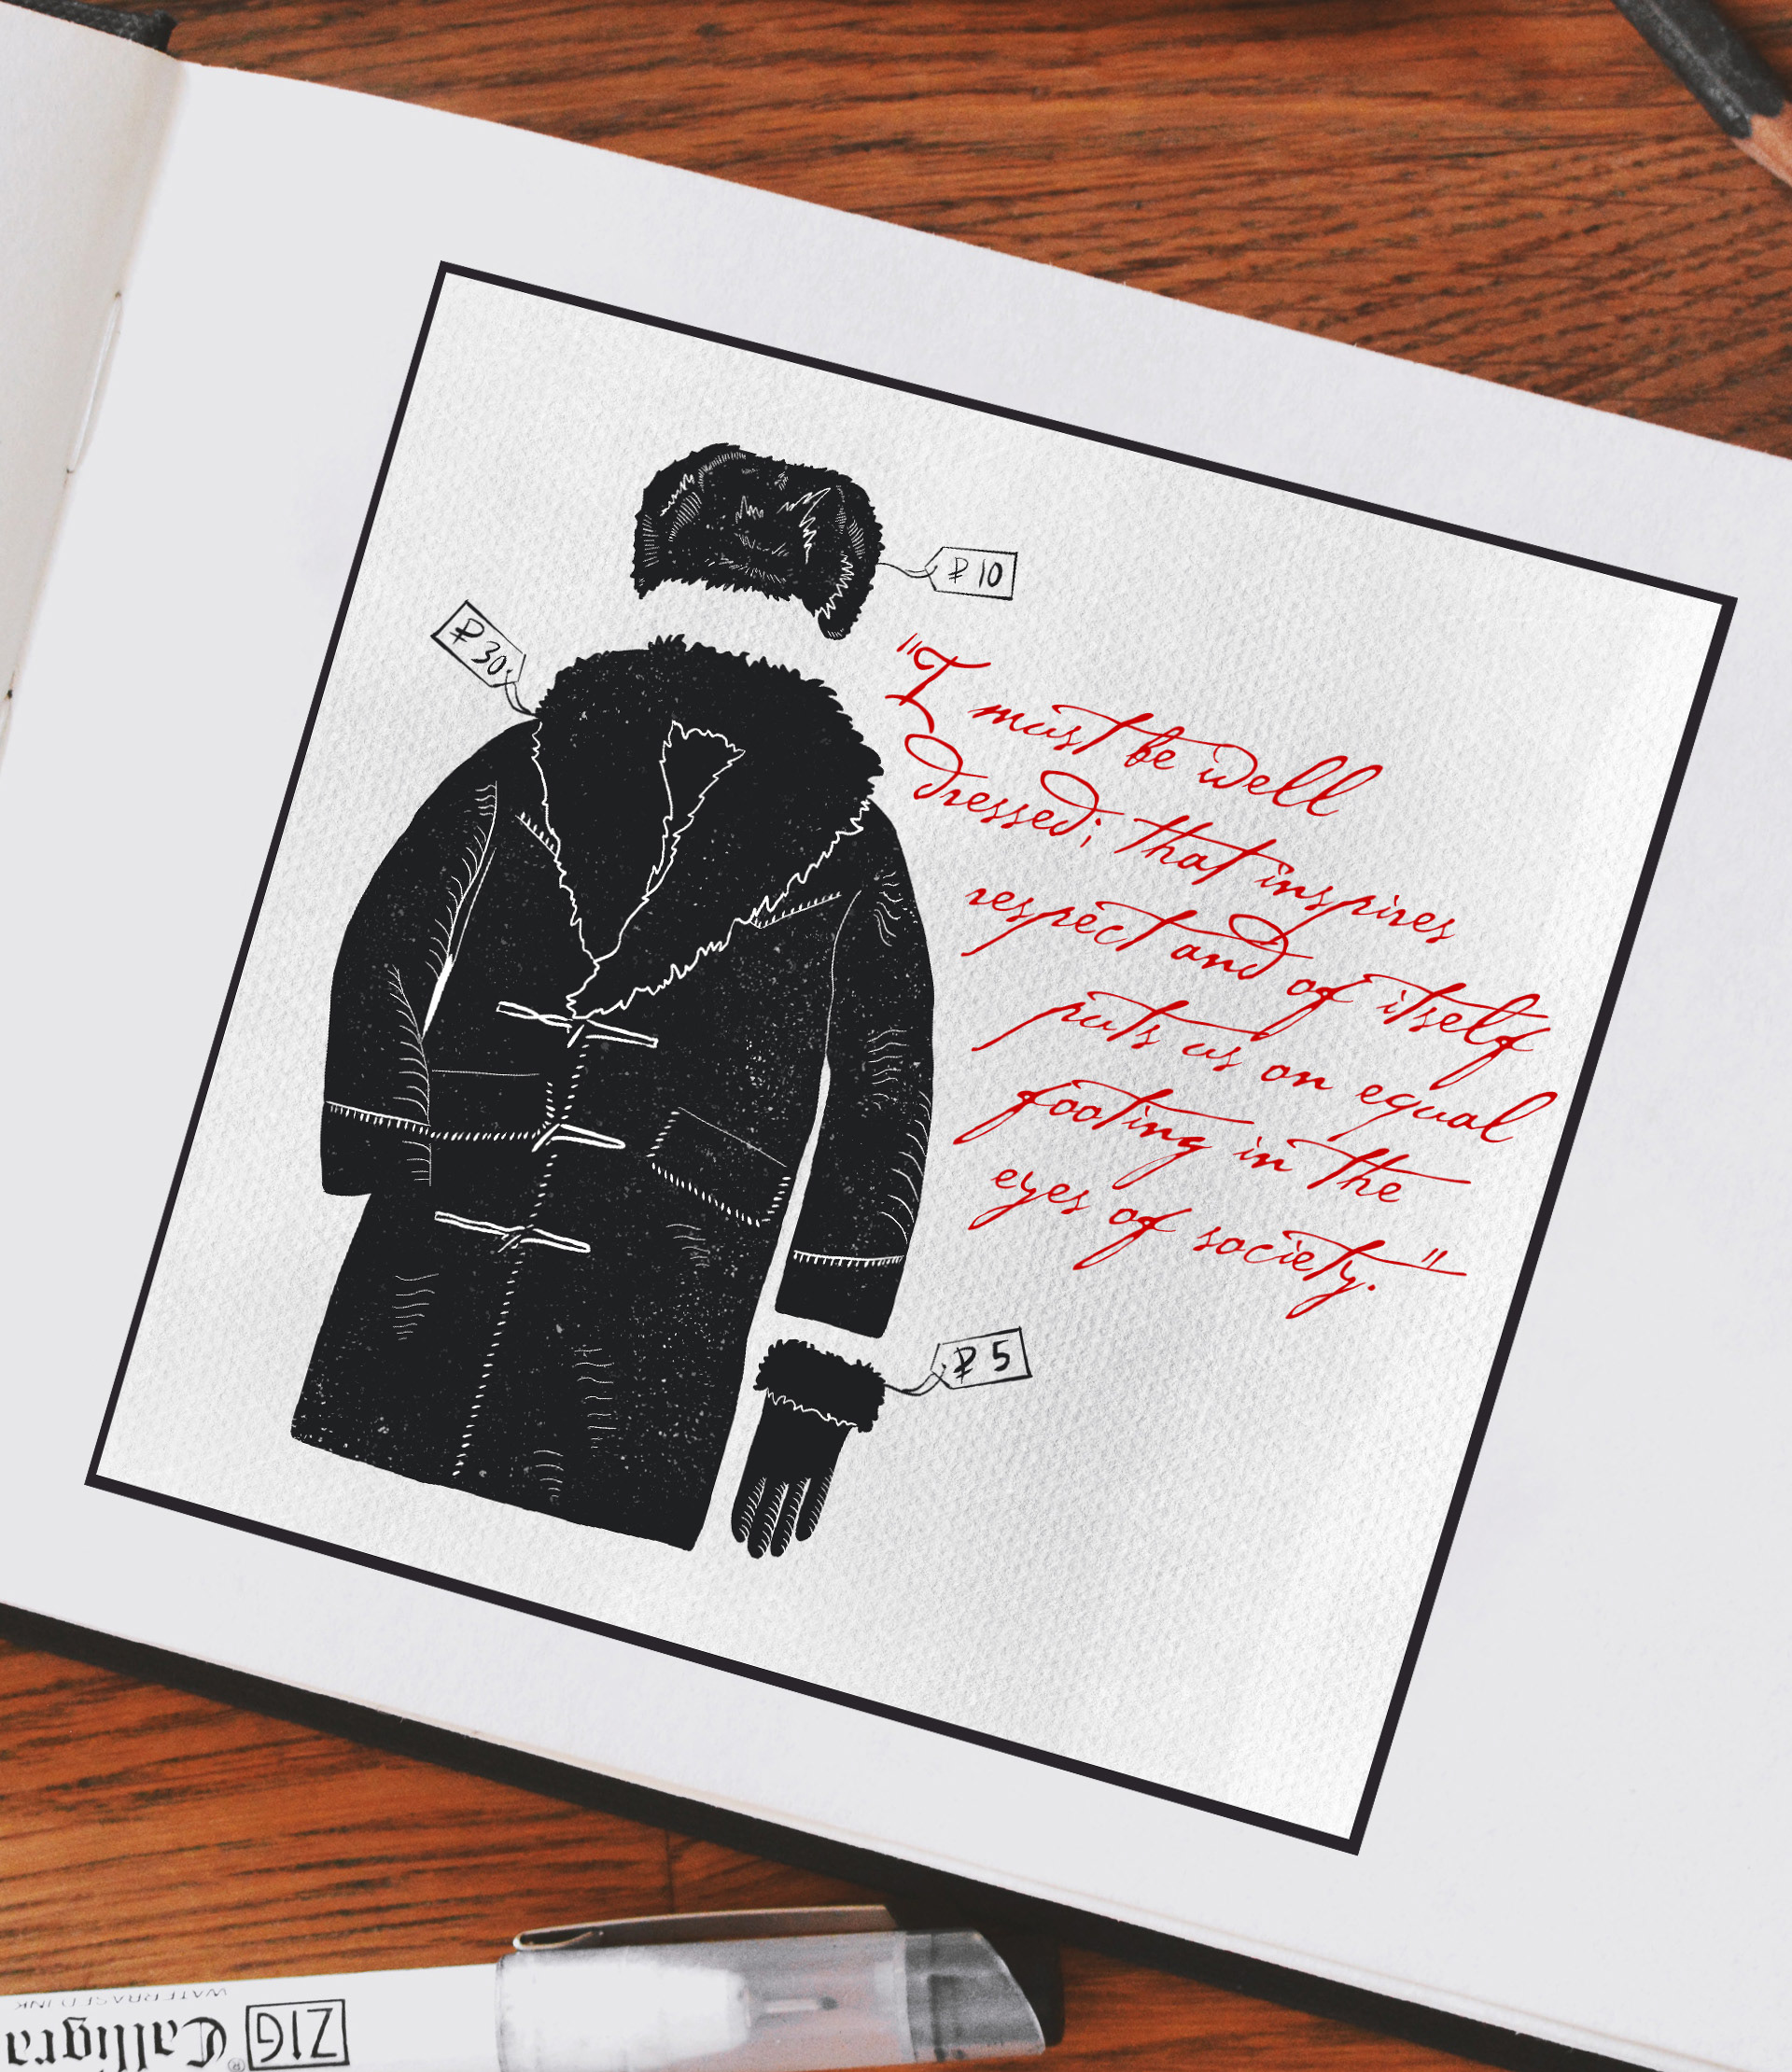 ₽ 10
₽ 30
"I must be well
dressed; that inspires
respect and of itself
puts us on equal
footing in the
eyes of society."
₽ 5
ZIG
Calligra
WATERBASED INK